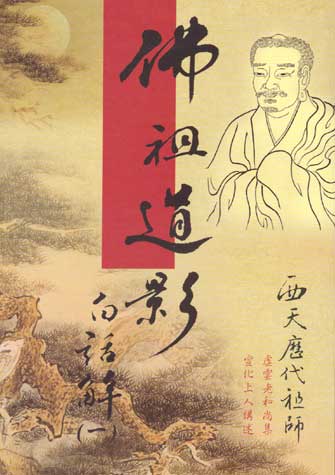 佛祖道影
白話解(一)
西天歷代祖師
虛雲老和尚集
宣化上人講述